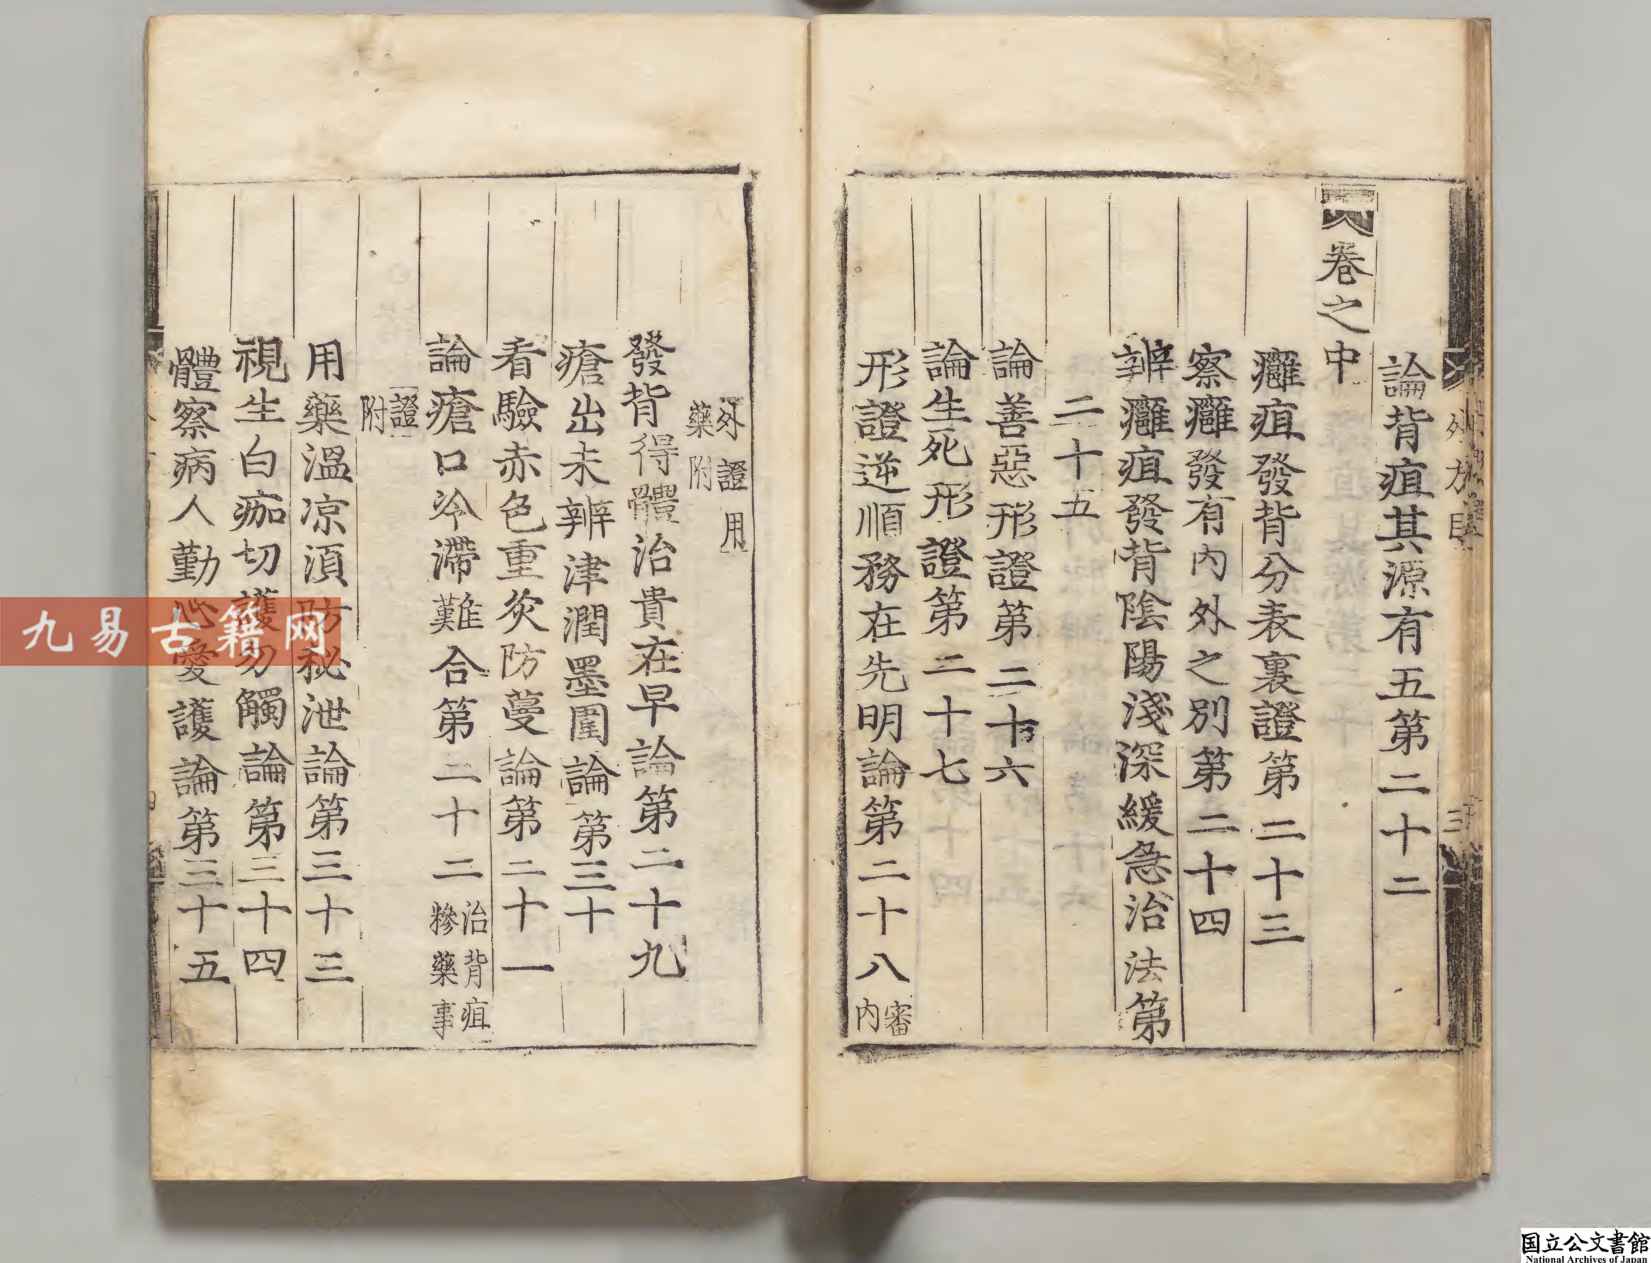 卷之中
論背疽其源有五第二十二
癰疽發背分表裏證第二十三
察癰發有內外之別第二十四
辨癰疽發背陰陽淺深緩急治法第
二十五
論善惡形證第二十六
論生死形證第二十七
形證逆順務在先明論第二十八 審
內
外證用
藥附
發背得體治貴在早論第二十九
瘡出未辨津潤墨圍論第三十
看驗赤色重灸防蔓論第二十一
論瘡口冷滯難合第二十二 治背疽
糝藥事
證
附
用藥溫凉須防秘泄論第三十三
視生白痂切護勿觸論第三十四
體察病人勤心愛護論第三十五
外方目
三
九易古籍网
国立公文書館
National Archives of Japan